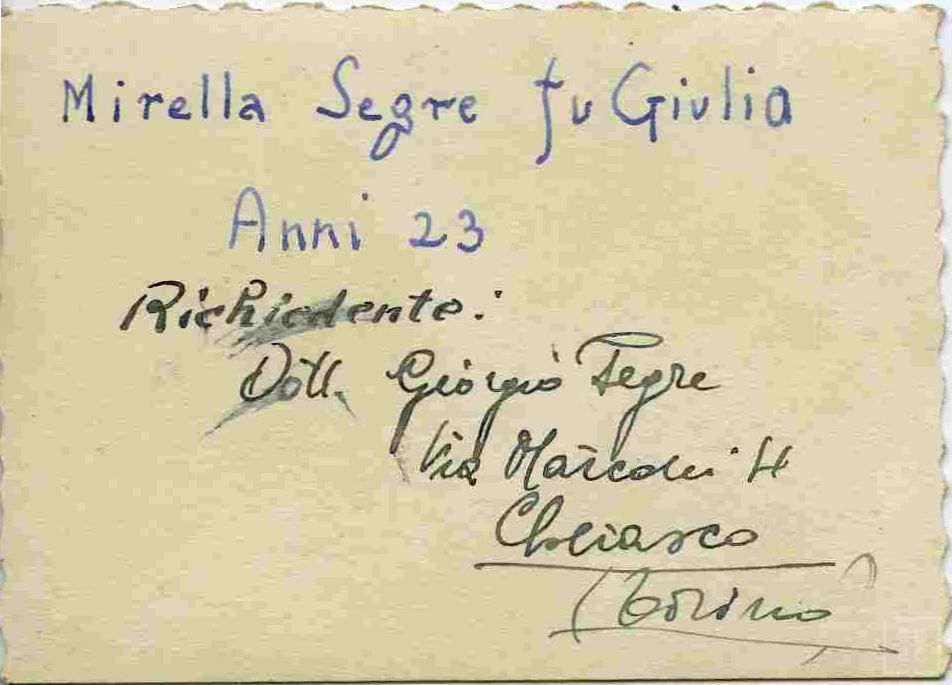 Mirella Segre fu Giulia
Anni 23
Richiedente:
Dott. Giorgio Segre
Via Marconi 4
Cherasco
(Torino)